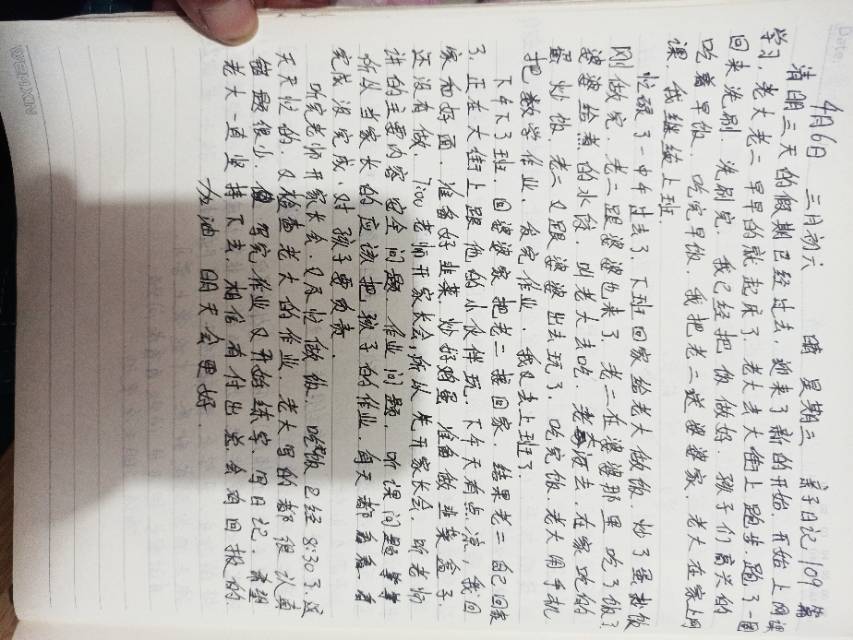 4月6日 三月初六 晴 星期三 亲子日记109篇
清明三天的假期已经过去,迎来了新的开始,开始上网课
学习,老大老二早早的就起床了,老大去大街上跑步,跑了一圈
回来洗刷,洗刷完,我已经把饭做好,孩子们高兴的
吃着早饭,吃完早饭,我把老二送婆婆家,老大在家上网
课,我继续上班.
忙碌了一中午过去了,下班回家给老大做饭,炒了蛋炒饭
刚做完,老二跟婆婆也来了,老二在婆婆那里吃了饭了
婆婆给煮的水饺,叫老大去吃,老大没去,在家吃的
蛋炒饭,老二又跟婆婆出去玩了,吃完饭,老大用手机
把数学作业,发完作业,我又去上班了.
下午下了班,回婆婆家把老二接回家,结果老二自己回来
了,正在大街上跟他的小伙伴玩,下午天有点凉,我回
家和好面,准备好韭菜,炒好鸡蛋,准备做韭菜盒子.
还没有做,7:00老师开家长会,所以先开家长会,听老师
讲的主要内容,安全问题,作业问题,听课问题等等
所以当家长的应该把孩子的作业,每天都看看,看
完成没完成,对孩子要负责.
听完老师开家长会,又及忙做饭,吃饭已经8:30了,这
天天忙的,又检查老大的作业,老大写的都很认真
错题很小,写完作业又开始练字,写日记,希望
老大一直坚持下去,相信有付出总会有回报的.
加油,明天会更好.